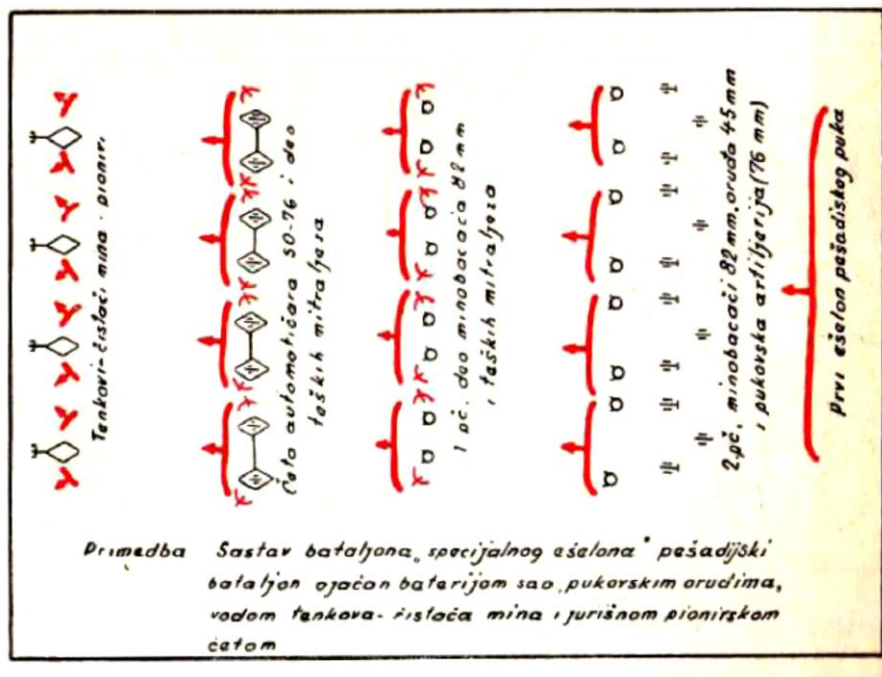 Tenkovi-čistači mina - pioniri
Četa automatičara SO-76 i deo
teških mitraljeza
1 pč. deo minobacača 82 mm
i teških mitraljeza
2.pč. minobacači 82 mm. oruđa 45 mm
i pukovska artiljerija (76 mm)
Prvi ešelon pešadiskog puka
Primedba Sastav bataljona „specijalnog ešelona" pešadijski
bataljon ojačan baterijom sao, pukovskim orudima,
vodom tenkova-čistača mina i jurišnom pionirskom
četom